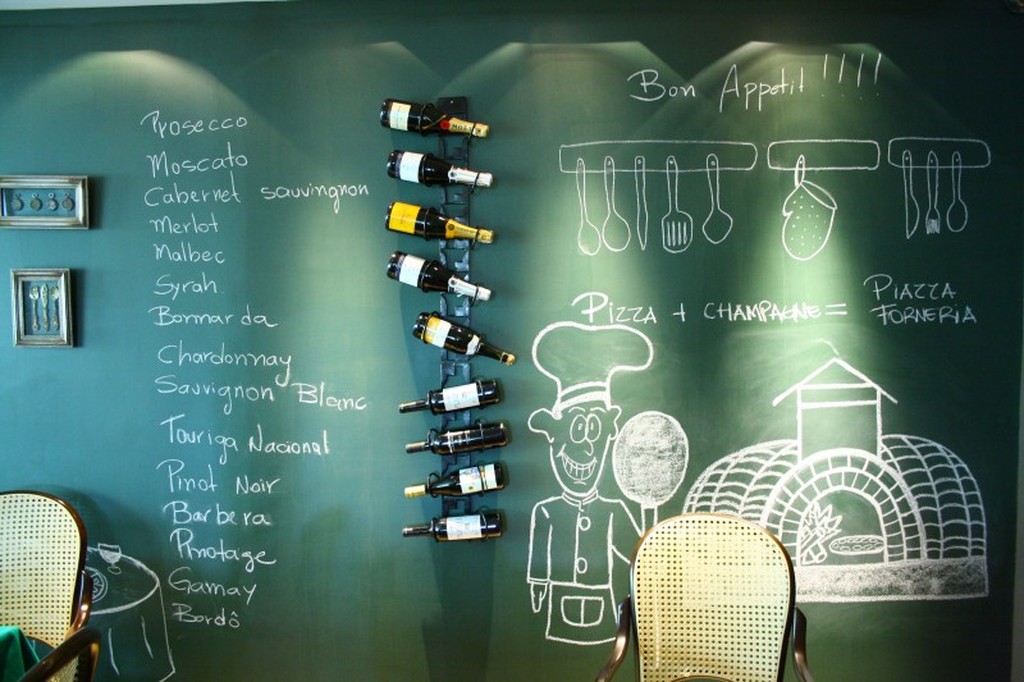 Prosecco
Moscato
Cabernet sauvingnon
Merlot
Malbec
Syrah.
Bornarda
Chardonnay
Sauvignon Blanc
Touriga Nacional
Pinot Noir
Barbera
Pinotage
Gamay
Bordô
Bon Appetit !!!!
Pizza + CHAMPAGNE =
PIAZZA
FORNERIA